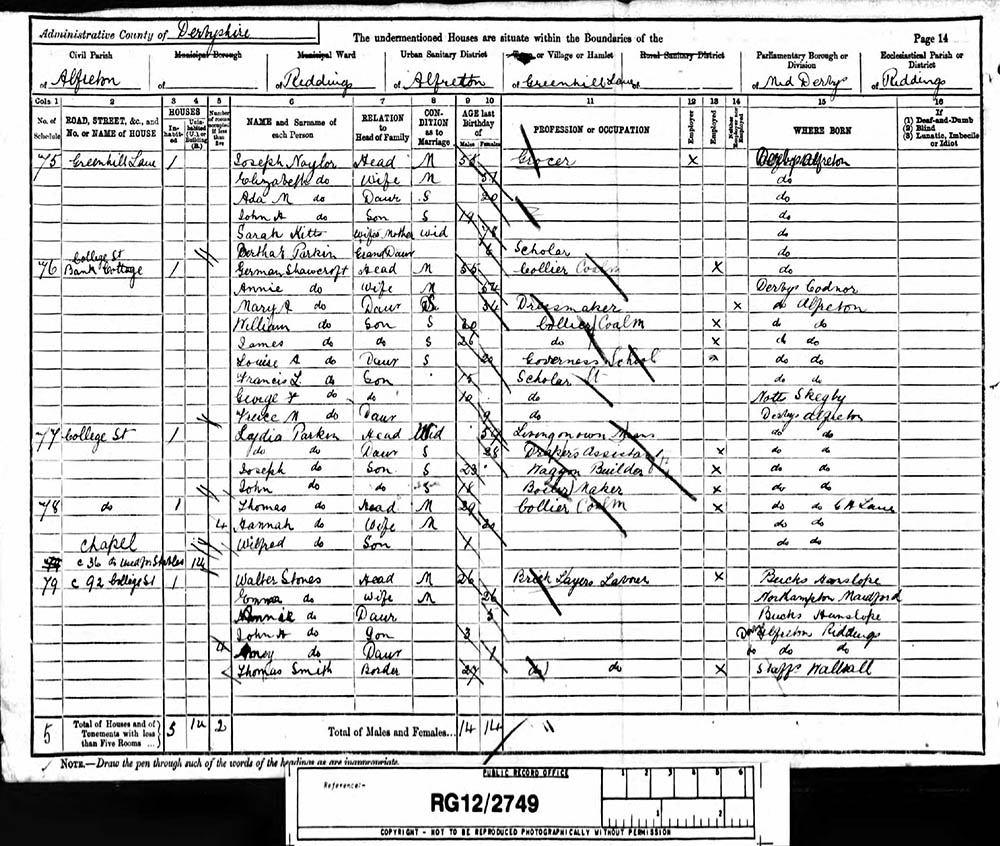 Administrative County of Derbyshire
The undermentioned Houses are situate within the Boundaries of the
Page 14
Civil Parish
Municipal Borough
Municipal Ward
Urban Sanitary District
Town or Village or Hamlet
Rural Sanitary District
Parliamentary Borough or Division
Ecclesiastical Parish or District
of Alfreton
of
of Riddings
of Alfretton
of Greenhill Lane
of
of Mid Derby
of Riddings
Cols. 1 2 3 4 5 6 7 8 9 10 11 12 13 14 15 16
No. of Schedule
ROAD, STREET, &c., and No. or NAME of HOUSE
HOUSES
In-habited
Uninhabited (U.) or Building (B.)
Number of rooms occupied if less than five
NAME and Surname of each Person
RELATION to Head of Family
CONDITION as to Marriage
AGE last Birthday of
Males
Females
PROFESSION or OCCUPATION
Employer
Employed
Neither Employer nor Employed
WHERE BORN
If
(1) Deaf-and-Dumb
(2) Blind
(3) Lunatic, Imbecile or Idiot
75 Greenhill Lane 1 Joseph Naylor Head M Grocer X Derbys Alfreton
Elizabeth do Wife M do
Ada M do Daur S 20 do
John H do Son S 19 do
Sarah Kitts Wifes Mother Wid 78 do
Bertha Parkin Grand Daur 6 Scholar do
College St
76 Bank Cottage 1 German Shawcroft Head M 55 Collier Coalm X do
Annie do Wife M 54 Derbys Codnor
Mary A do Daur S 34 Dressmaker X do Alfreton
William do Son S 30 Collier Coalm X do do
James do do S 26 do X do do
Louise A do Daur S Governess School do do
Francis L. do Son 15 Scholar St do do
George F do do 10 do Notts Skegby
M do Daur 9 do Derbys Alfreton
77 College St 1 Lydia Parkin Head Wid 54 Living on own Means do do
do do Daur S 28 Drapers Assistant X do do
Joseph do Son S 23 Waggon Builder X do do
John do do S 18 Boiler Maker X do do
78 do 1 Thomas do Head M 29 Collier Coalm X do do G H Lane
4 Hannah do Wife M do do
Chapel Wilfred do Son do do
14
79 c 92 College St 1 Walter Stones Head M 26 Brick Layers Labour X Bucks Hanslope
Emma do Wife M 26 Northampton
Annie do Daur 5 Bucks Hanslope
John H do Son 3 Derbys Alfreton Riddings
4 do Daur 1 do do do
Thomas Smith Border 27 do do X Staffs Wallsall
5
Total of Houses and of Tenements with less than Five Rooms ...
5 14 2
Total of Males and Females...
14 14
NOTE.—Draw the pen through such of the words of the headings as are inappropriate.
PUBLIC RECORD OFFICE
Reference:-
RG12/2749
1 2 3 4 5 6
1 2
COPYRIGHT - NOT TO BE REPRODUCED PHOTOGRAPHICALLY WITHOUT PERMISSION